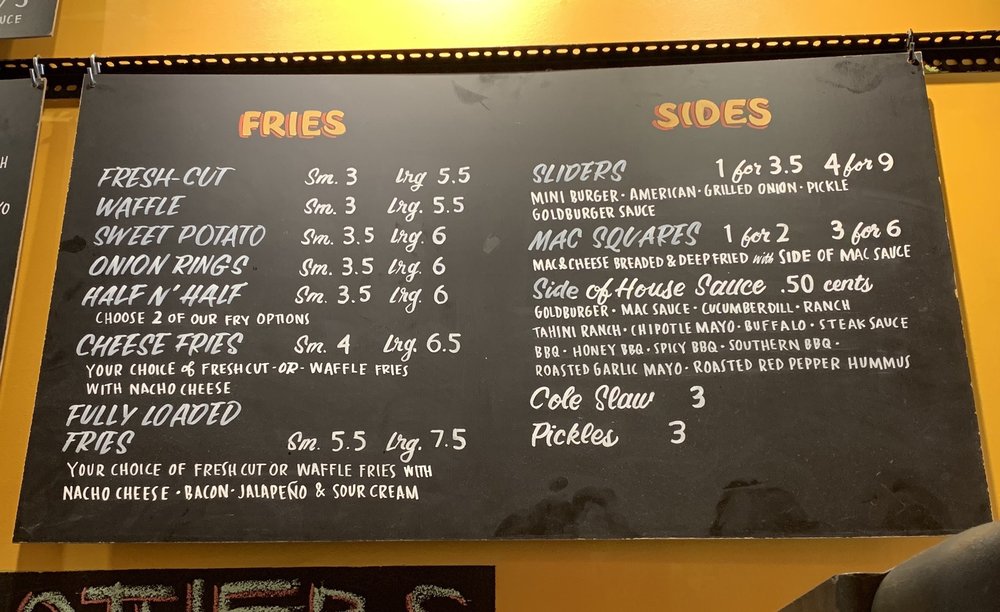 UCE
H
FRIES
FRESH-CUT Sm. 3 Lrg 5.5
WAFFLE Sm. 3 Lrg. 5.5
SWEET POTATO Sm. 3.5 Lrg. 6
ONION RINGS Sm. 3.5 Lrg. 6
HALF N' HALF Sm. 3.5 Lrg. 6
CHOOSE 2 OF OUR FRY OPTIONS
CHEESE FRIES Sm. 4 Lrg. 6.5
YOUR CHOICE of FRESH CUT -OR- WAFFLE FRIES
WITH NACHO CHEESE
FULLY LOADED
FRIES Sm. 5.5 Lrg. 7.5
YOUR CHOICE OF FRESH CUT OR WAFFLE FRIES WITH
NACHO CHEESE · BACON · JALAPEÑO & SOUR CREAM
SIDES
SLIDERS 1 for 3.5 4 for 9
MINI BURGER · AMERICAN · GRILLED ONION · PICKLE
GOLDBURGER SAUCE
MAC SQUARES 1 for 2 3 for 6
MAC & CHEESE BREADED & DEEP FRIED with SIDE OF MAC SAUCE
Side of House Sauce .50 cents
GOLDBURGER · MAC SAUCE · CUCUMBER DILL · RANCH
TAHINI RANCH · CHIPOTLE MAYO · BUFFALO · STEAK SAUCE
BBQ · HONEY BBQ · SPICY BBQ · SOUTHERN BBQ ·
ROASTED GARLIC MAYO · ROASTED RED PEPPER HUMMUS
Cole Slaw 3
Pickles 3
OTHERS